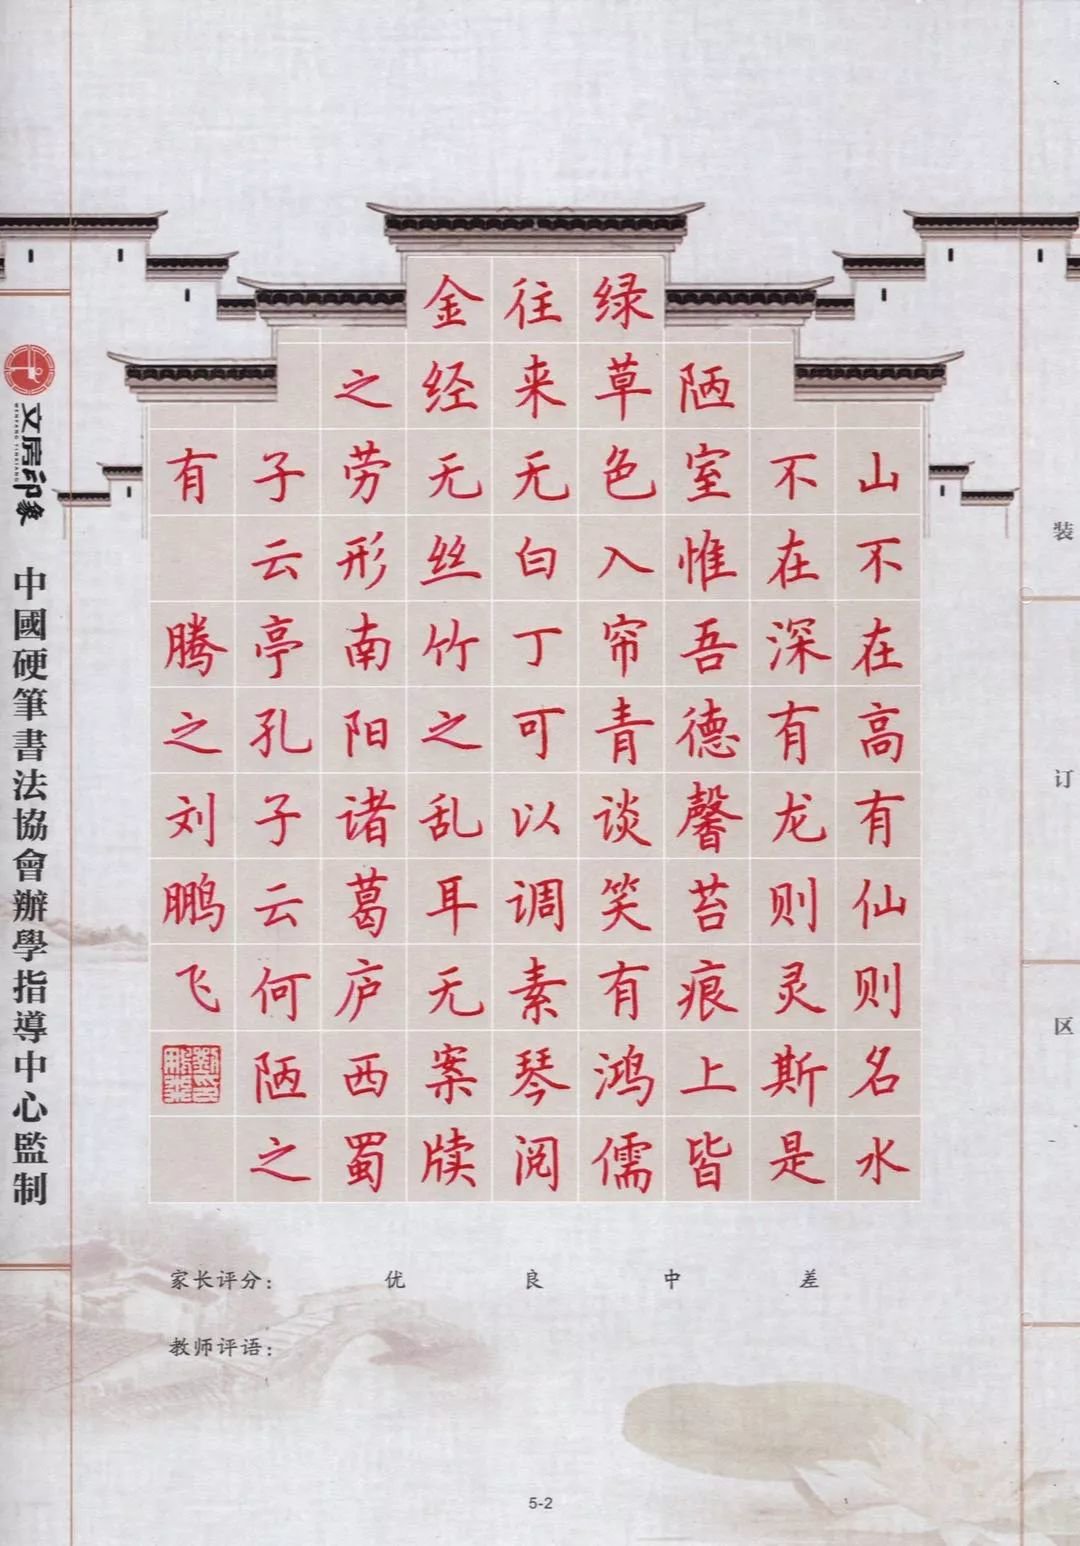 山不在高有仙则名水
不在深有龙则灵斯是
陋室惟吾德馨苔痕上皆
绿草色入帘青谈笑有鸿儒
往来无白丁可以调素琴阅
金经无丝竹之乱耳无案牍
之劳形南阳诸葛庐西蜀
子云亭孔子云何陋之
有 腾之刘鹏飞
文房印象
WENFANG YINXIANG
中國硬筆書法協會辦學指導中心監制
装订区
家长评分： 优 良 中 差
教师评语：
5-2